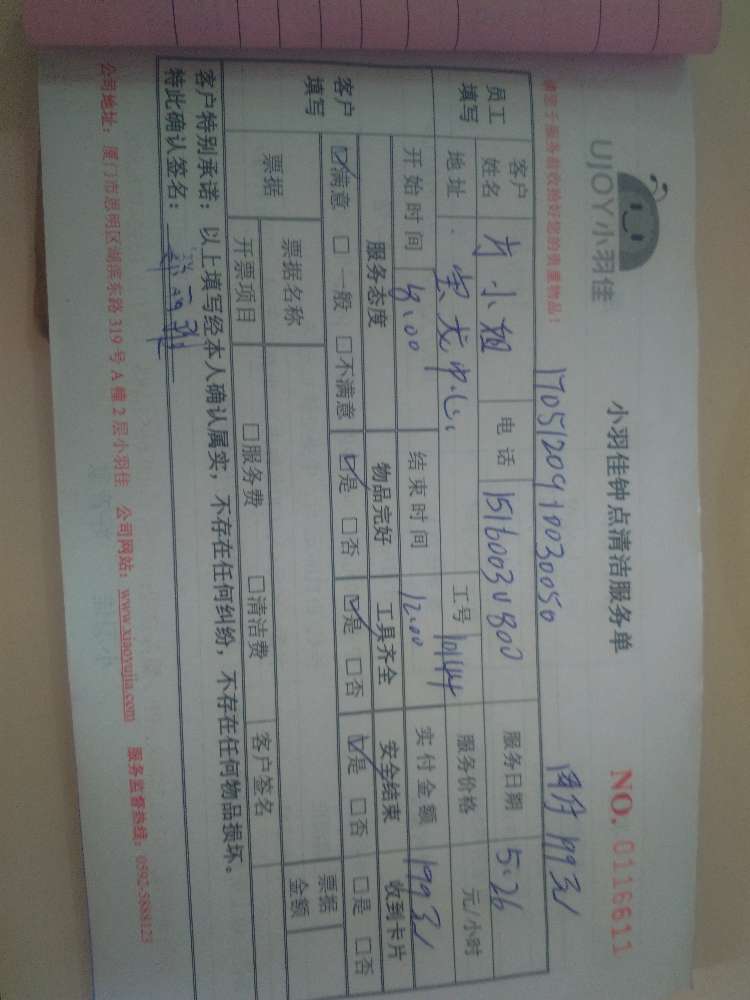 UJOY小羽佳
小羽佳钟点清洁服务单
NO. 0116611
请您于服务前收拾好您的贵重物品!
17051209410030050
199元
员工填写
客户姓名 方小姐 电话 服务日期 5.26
地址 宝龙中心 工号 10144 服务价格 元/小时
开始时间 8:00 结束时间 12:00 实付金额 199元
客户填写
服务态度 物品完好 工具齐全 安全结束 收到卡片
☑满意 □一般 □不满意 ☑是 □否 ☑是 □否 ☑是 □否 □是 □否
票据 票据名称 票据金额
开票项目 □服务费 □清洁费 客户签名
客户特别承诺:以上填写经本人确认属实,不存在任何纠纷,不存在任何物品损坏。
特此确认签名:
公司地址:厦门市思明区湖滨东路319号A幢2层小羽佳 公司网站:www.xiaoyujia.com 服务监督热线:0592-5888123